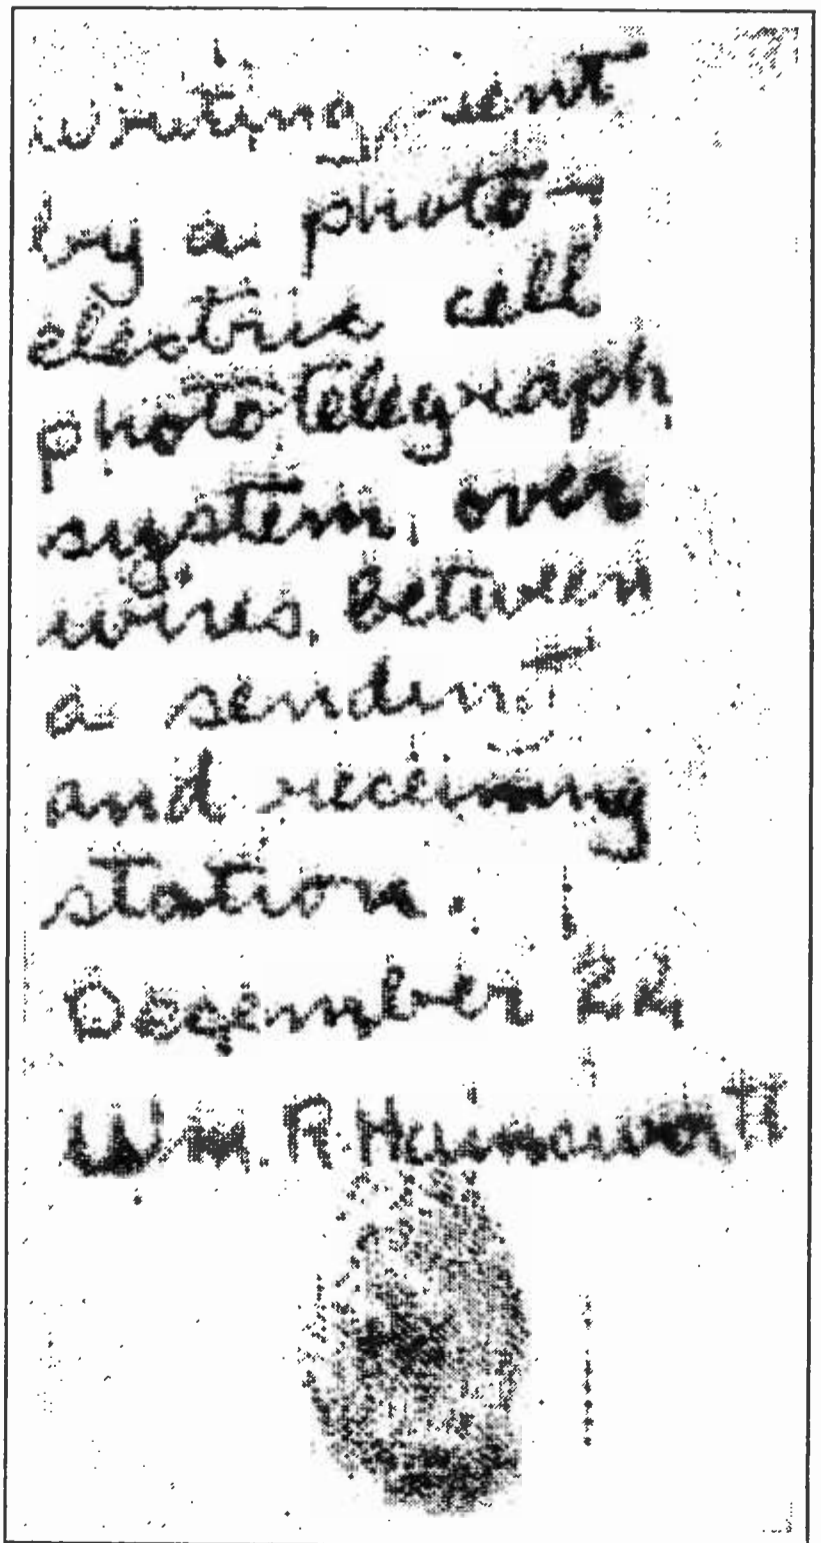 writing sent
by a photo-
electric cell
phototelegraph
system, over
wires, between
a sending
and receiving
station.
December 22
Wm. R.